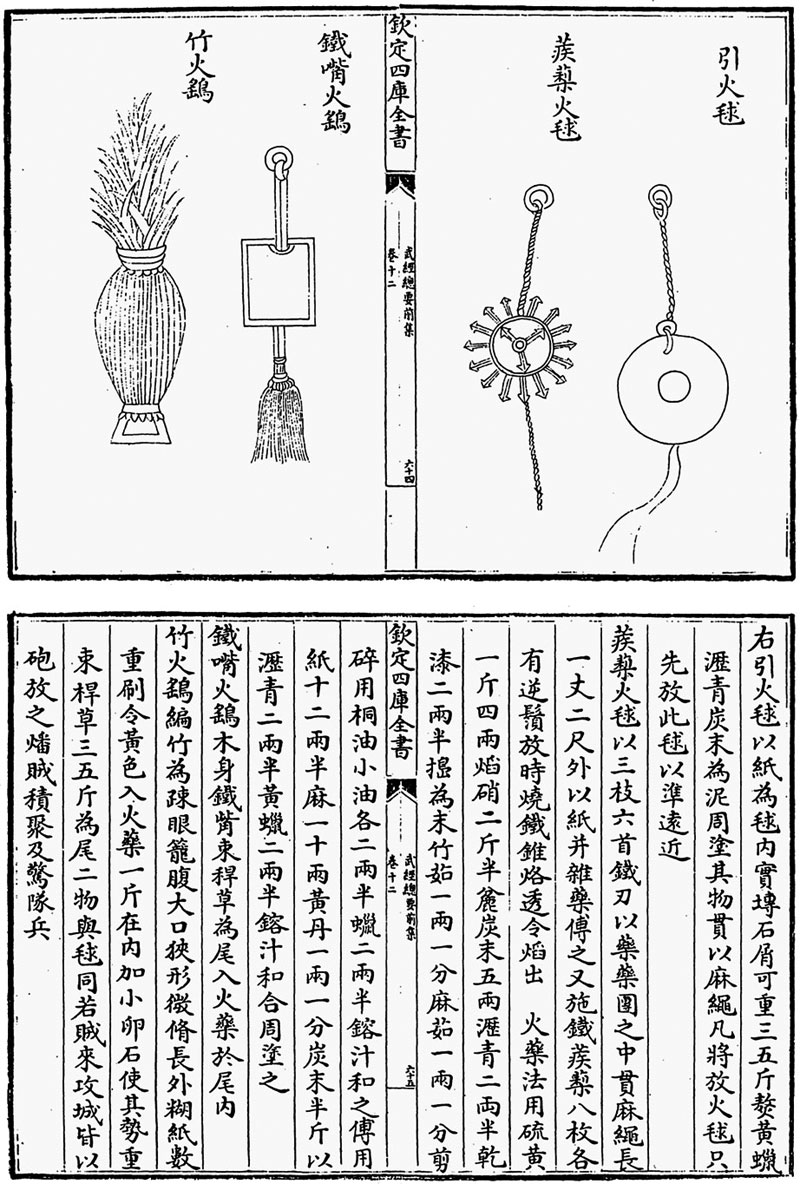 引火毬
蒺藜火毬
欽定四庫全書
武經總要前集
卷十二
六十四
鐵嘴火鷂
竹火鷂
右引火毬以紙為毬內實塼石屑可重三五斤熬黃蠟
瀝青炭末為泥周塗其物貫以麻繩凡將放火毬只
先放此毬以準遠近
蒺藜火毬以三枝六首鐵刃以藥藥團之中貫麻繩長
一丈二尺外以紙并雜藥傅之又施鐵蒺藜八枚各
有逆鬚放時燒鐵錐烙透令焰出 火藥法用硫黃
一斤四兩焰硝二斤半麄炭末五兩瀝青二兩半乾
漆二兩半擣為末竹茹一兩一分麻茹一兩一分剪
欽定四庫全書
武經總要前集
卷十二
六十五
碎用桐油小油各二兩半蠟二兩半鎔汁和之傅用
紙十二兩半麻一十兩黃丹一兩一分炭末半斤以
瀝青二兩半黃蠟二兩半鎔汁和合周塗之
鐵嘴火鷂木身鐵觜束稈草為尾入火藥於尾內
竹火鷂編竹為疎眼籠腹大口狹形微脩長外糊紙數
重刷令黃色入火藥一斤在內加小卵石使其勢重
束稈草三五斤為尾二物與毬同若賊來攻城皆以
砲放之燔賊積聚及驚隊兵